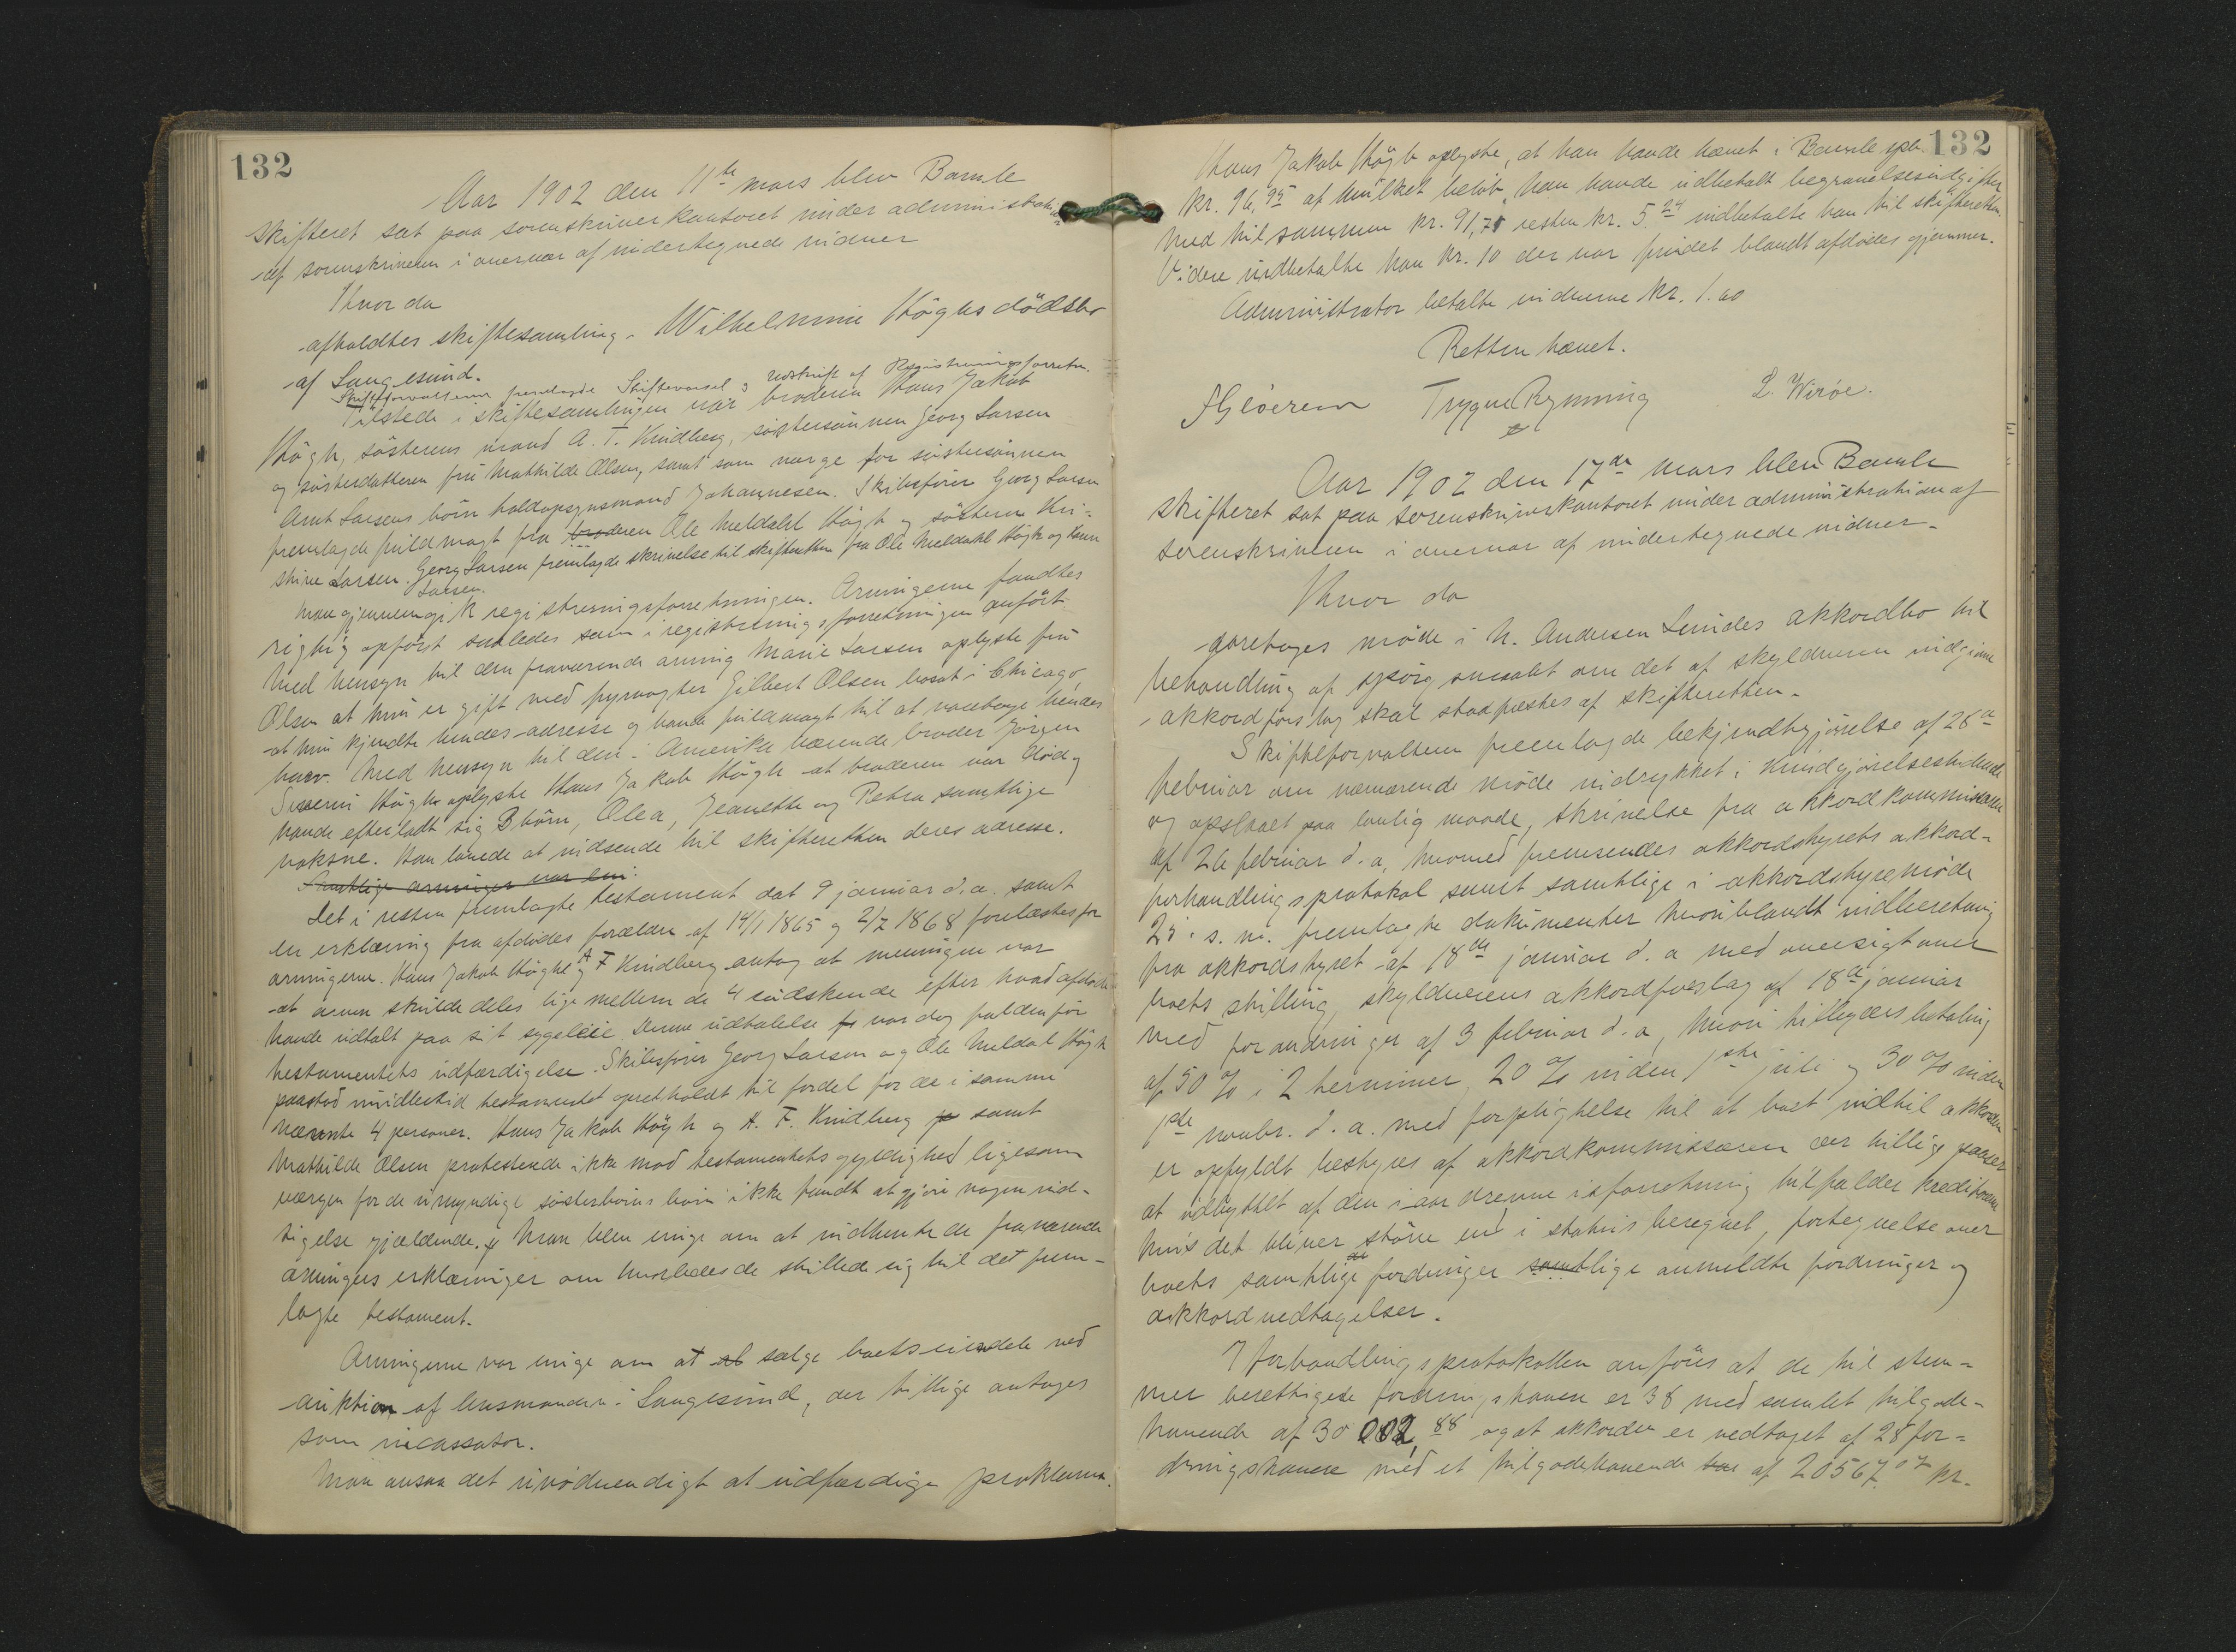 132
Aar 1902 den 11te mars blev Bamle
skifteret sat paa sorenskriverkontoret under administration
af sorenskriveren i overvær af undertegnede vidner
Hvor da
afholdtes skiftesamling i Wilhelmine Høghs dødsbo
af Langesund.
Skifteforvalteren fremlagde Skiftevarsel og Udskrift af Registreringsforretn.
Tilstede i skiftesamlingen var broderen Hans Jakob
Høgh, søsterens mand A. F. Kindberg, søstersønnen Georg Larsen
og søsterdatteren fru Mathilde Olsen, samt som værge for søstersønnen
Arnt Larsens børn toldopsynsmand Johannesen. Skibsfører Georg Larsen
fremlagde fuldmagt fra broderen Ole Meldahl Høgh og søsteren Kri-
stine Larsen. Georg Larsen fremlagde skrivelse til skifteretten fra Ole Meldahl Høgh og
Larsen.
Man gjennemgik registreringsforretningen. Arvingerne fandtes
rigtig opført saaledes som i registreringsforretningen anført.
Med hensyn til den fraværende arving Marie Larsen oplyste fru
Olsen at hun er gift med fyrvogter Gilbert Olsen bosat i Chicago,
at hun kjendte hendes adresse og havde fuldmagt til at varetage hendes
tarv. Med hensyn til den i Amerika værende broder Jørgen
Severin Høgh oplyste Hans Jakob Høgh at broderen var død og
havde efterladt sig 3 børn, Olea, Jeanette og Petra samtlige
voksne. Han lovede at indsende til skifteretten deres adresse.
Samtlige arvinger var eni
Det i retten fremlagte testament dat 9 januar d.a. samt
en erklæring fra afdødes forældre af 14/1 1865 og 2/7 1868 forelæstes for
arvingerne. Hans Jakob Høgh og A F Kindberg antog at meningen var
at arven skulde deles lige mellem de 4 sødskende efter hvad afdøde
havde udtalt paa sit sygeleie. Denne udtalelse var dog falden før
testamentets udfærdigelse. Skibsfører Georg Larsen og Ole Meldal Høgh
paastod imidlertid testamentet opretholdt til fordel for de i samme
nævnte 4 personer. Hans Jakob Høgh og A. F. Kindberg samt
Mathilde Olsen protesterede ikke mod testamentets gyldighed ligesom
værgen for de umyndige søsterbørns børn ikke fandt at gjøre nogen ind-
sigelse gjældende. Man blev enige om at indhente de fraværende
arvingers erklæringer om hvorledes de stillede sig til det frem-
lagte testament.
Arvingerne var enige om at at sælge boets eiendele ved
auktion af lensmanden i Langesund, der tillige antages
som incassator.
Man ansaa det unødvendigt at udfærdige proklama.
132
Hans Jakob Høgh oplyste, at han havde hævet i Bamle spb.
kr. 96,95 af hvilket beløb han havde udbetalt begravelsesudgifter
med tilsammen kr. 91,71 resten kr. 5.24 indbetalte han til skifteretten.
Videre indbetalte han kr. 10 der var fundet blandt afdødes gjemmer.
Administrator betalte vidnerne kr. 1.60
Retten hævet.
Trygve Rynning
L. Wirøe.
Aar 1902 den 17de mars blev Bamle
skifteret sat paa sorenskriverkontoret under administration af
sorenskriveren i overvær af undertegnede vidner.
Hvor da
foretoges møde i N. Andersen Lundes akkordbo til
behandling af spørgsmaalet om det af skyldneren indgivne
akkordforslag skal stadfæstes af skifteretten.
Skifteforvalteren fremlagde bekjendtgjørelse af 26de
februar om nærværende møde indrykket i Kundgjørelsestidende
og opslaaet paa lovlig maade, skrivelse fra akkordkommissæren
af 26 februar d.a, hvormed fremsendes akkordstyrets akkord-
forhandlingsprotokol samt samtlige i akkordstyremøde
25. s. m. fremlagte dokumenter hvoriblandt indberetning
fra akkordstyret af 18de januar d. a med oversigt over
boets stilling, skyldnerens akkordforslag af 18de januar
med forandringer af 3 februar d. a, hvori tilbydes betaling
af 50 % i 2 terminer, 20 % inden 1ste juli og 30 % inden
1ste novbr. d. a. med forpligtelse til at boet indtil akkorden
er opfyldt bestyres af akkordkommissæren der tillige paaser
at udbyttet af den i aar drevne isforretning tilfalder kreditorerne
hvis det bliver større end i status beregnet, fortegnelse over
boets samtlige fordringer samtlige anmeldte fordringer og
akkordvedtagelser.
I forhandlingsprotokollen anføres at de til stem-
mer berettigede fordringshavere er 38 med samlet tilgode-
havende af 30 002,88 og at akkorden er vedtaget af 28 for-
dringshavere med et tilgodehavende af 20567.07 kr.